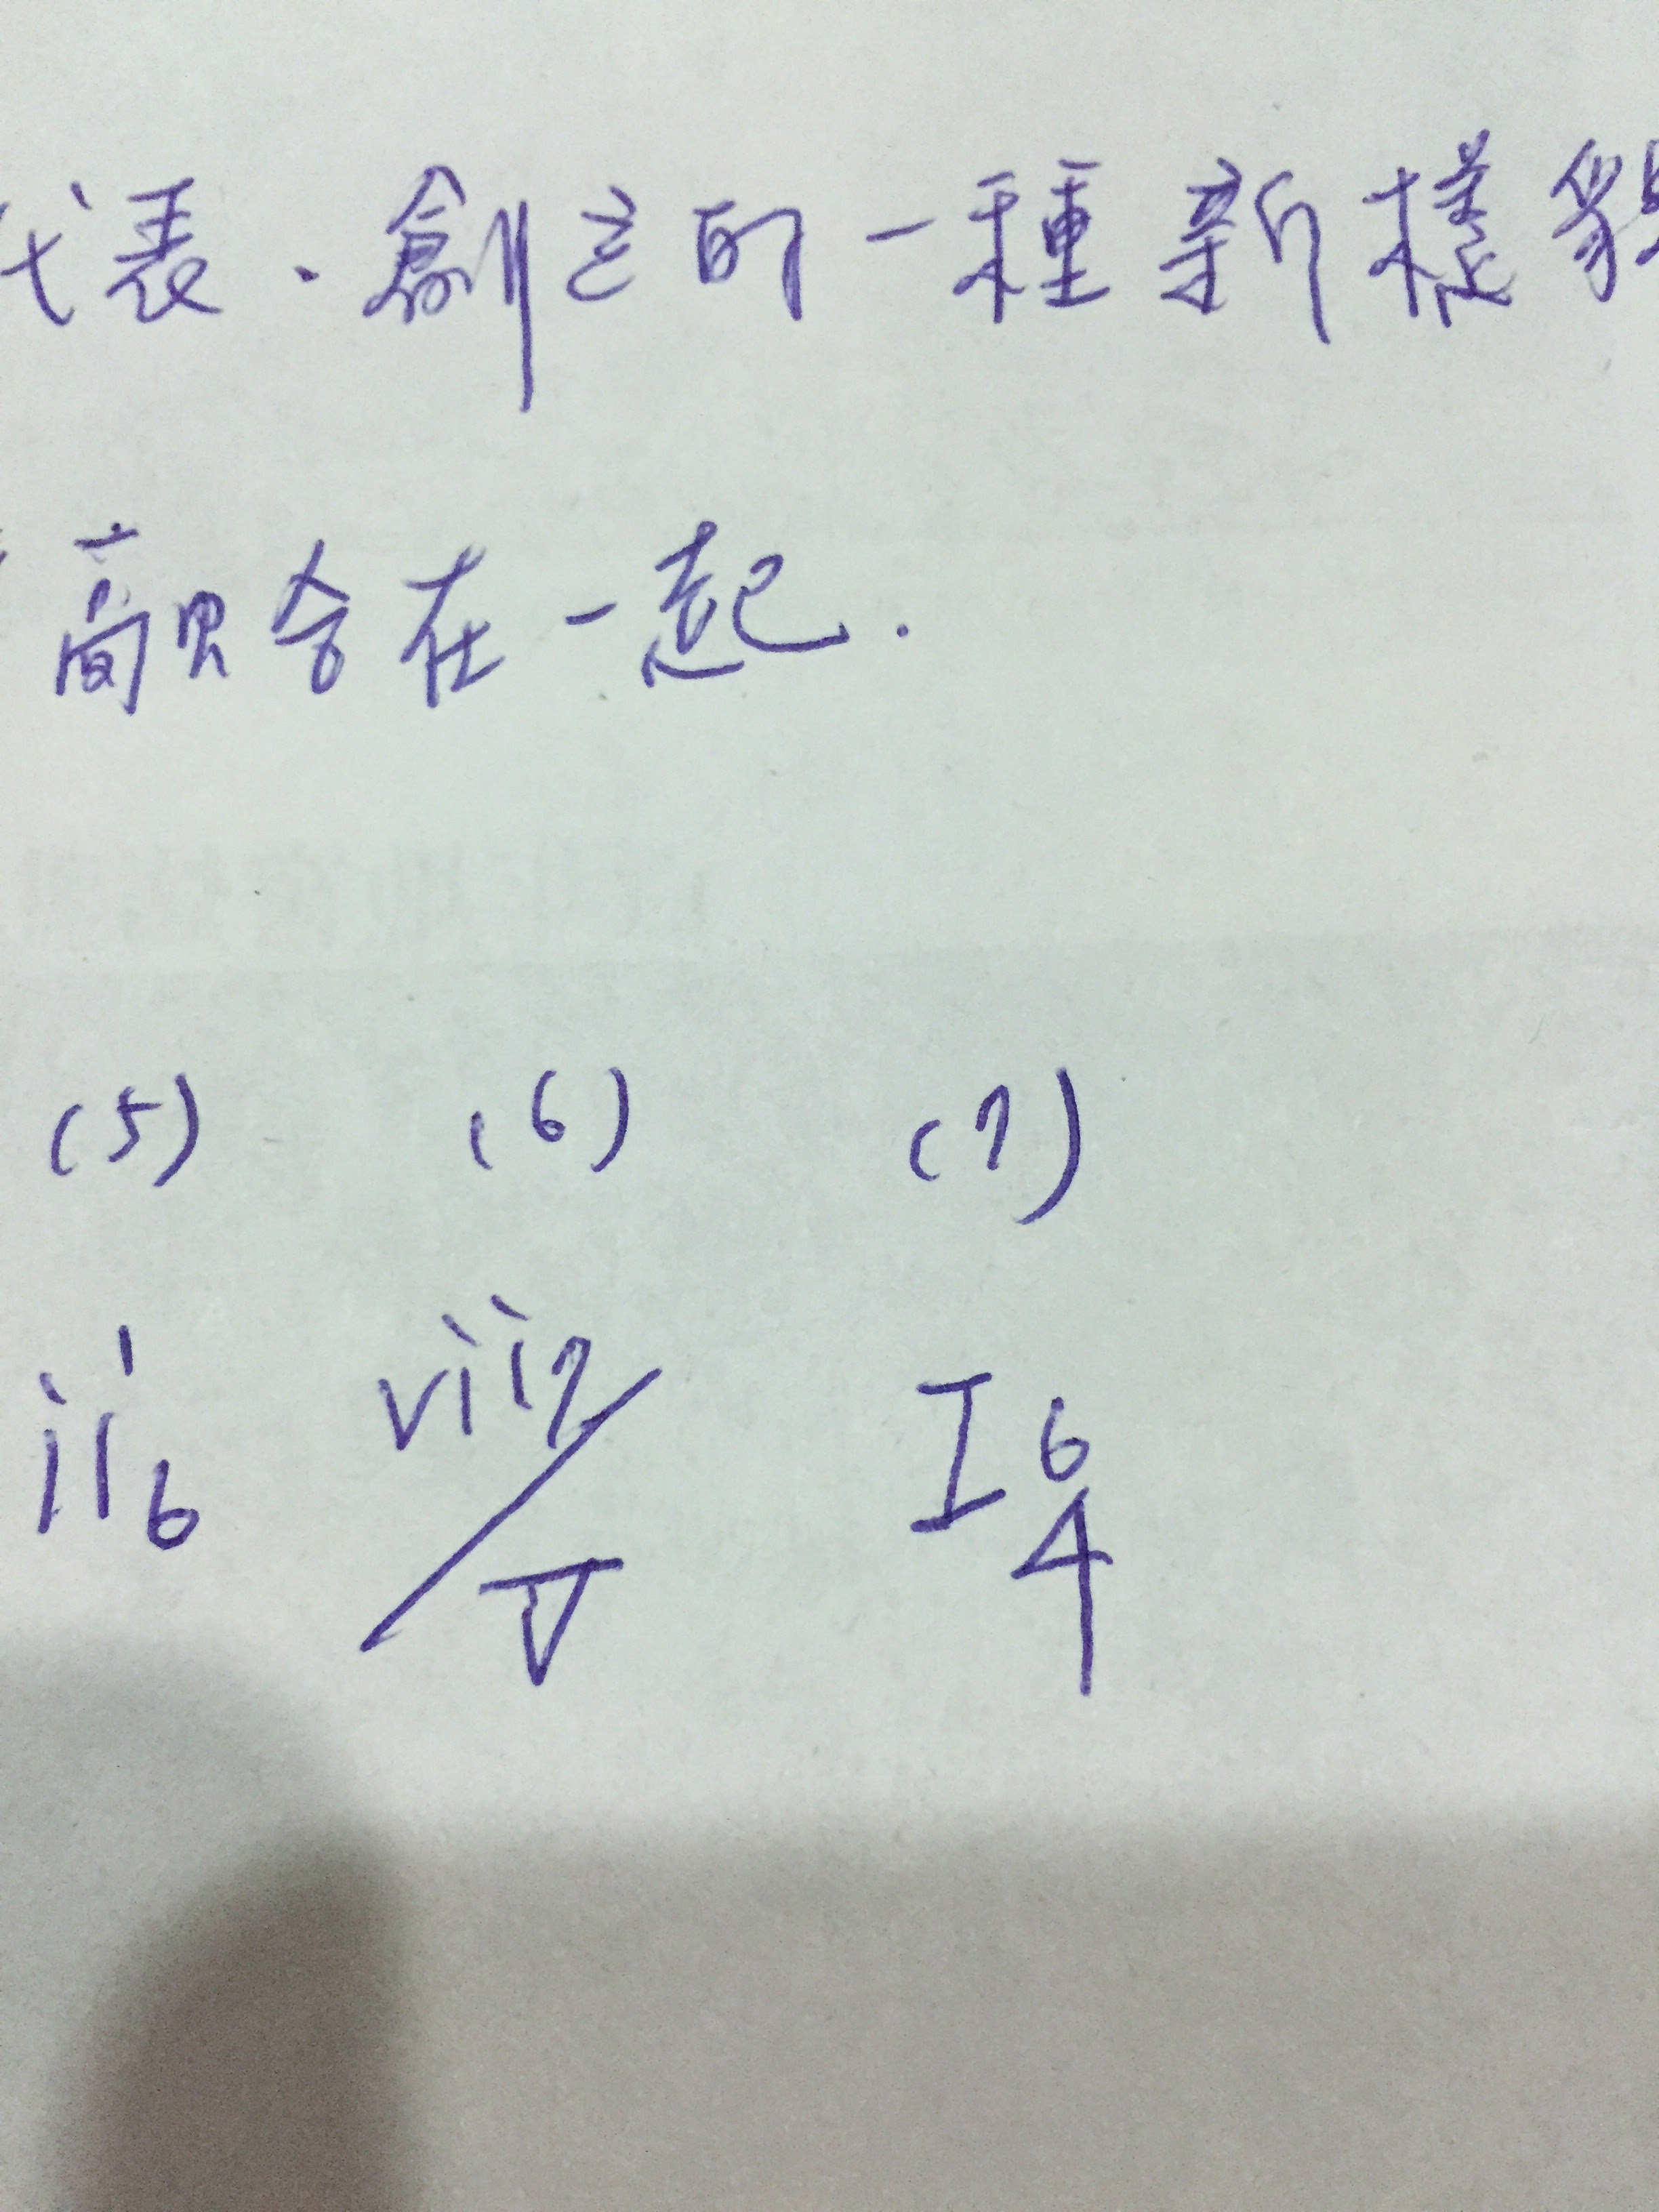 代表．創立的一種新樣貌
融合在一起．
(5) (6) (7)
ii6 vii7/V I6
4